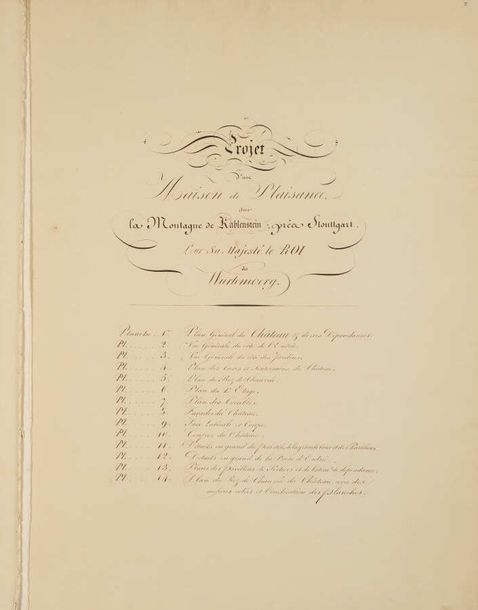 Projet
d'une
Maison de Plaisance,
sur
la Montagne de Kahlenstein, près Stouttgart.
Pour Sa Majesté le ROI
de
Wurtemberg.
Planche 1. Plan Général du Château & de ses Dépendances.
Pl. 2. Vue Générale du côté de l'Entrée.
Pl. 3. Vue Générale du côté des Jardins.
Pl. 4. Plan des Caves et Souterrains du Château.
Pl. 5. Plan du Rez de Chaussée.
Pl. 6. Plan du 1er Etage.
Pl. 7. Plan des Combles.
Pl. 8. Façades du Château.
Pl. 9. Face Latérale et Coupe.
Pl. 10. Coupes du Château.
Pl. 11. Détails en grand de et des Pavillons.
Pl. 12. Détails en grand de la Porte d'Entrée.
Pl. 13. Plans des pavillons de Portiers et de dépendances.
Pl. 14. Plan du Rez de Chaussée du Château, avec des
et l'indication des planches.